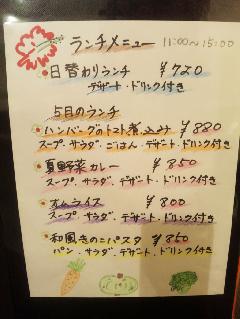 ランチメニュー 11:00~15:00
日替わりランチ ¥720
デザート・ドリンク付き
5月のランチ
ハンバーグのトマト煮込み ¥880
スープ・サラダ・ごはん・デザート・ドリンク付き
夏野菜カレー ¥850
スープ・サラダ・デザート・ドリンク付き
オムライス ¥800
スープ・サラダ・デザート・ドリンク付き
和風きのこパスタ ¥850
パン・サラダ・デザート・ドリンク付き